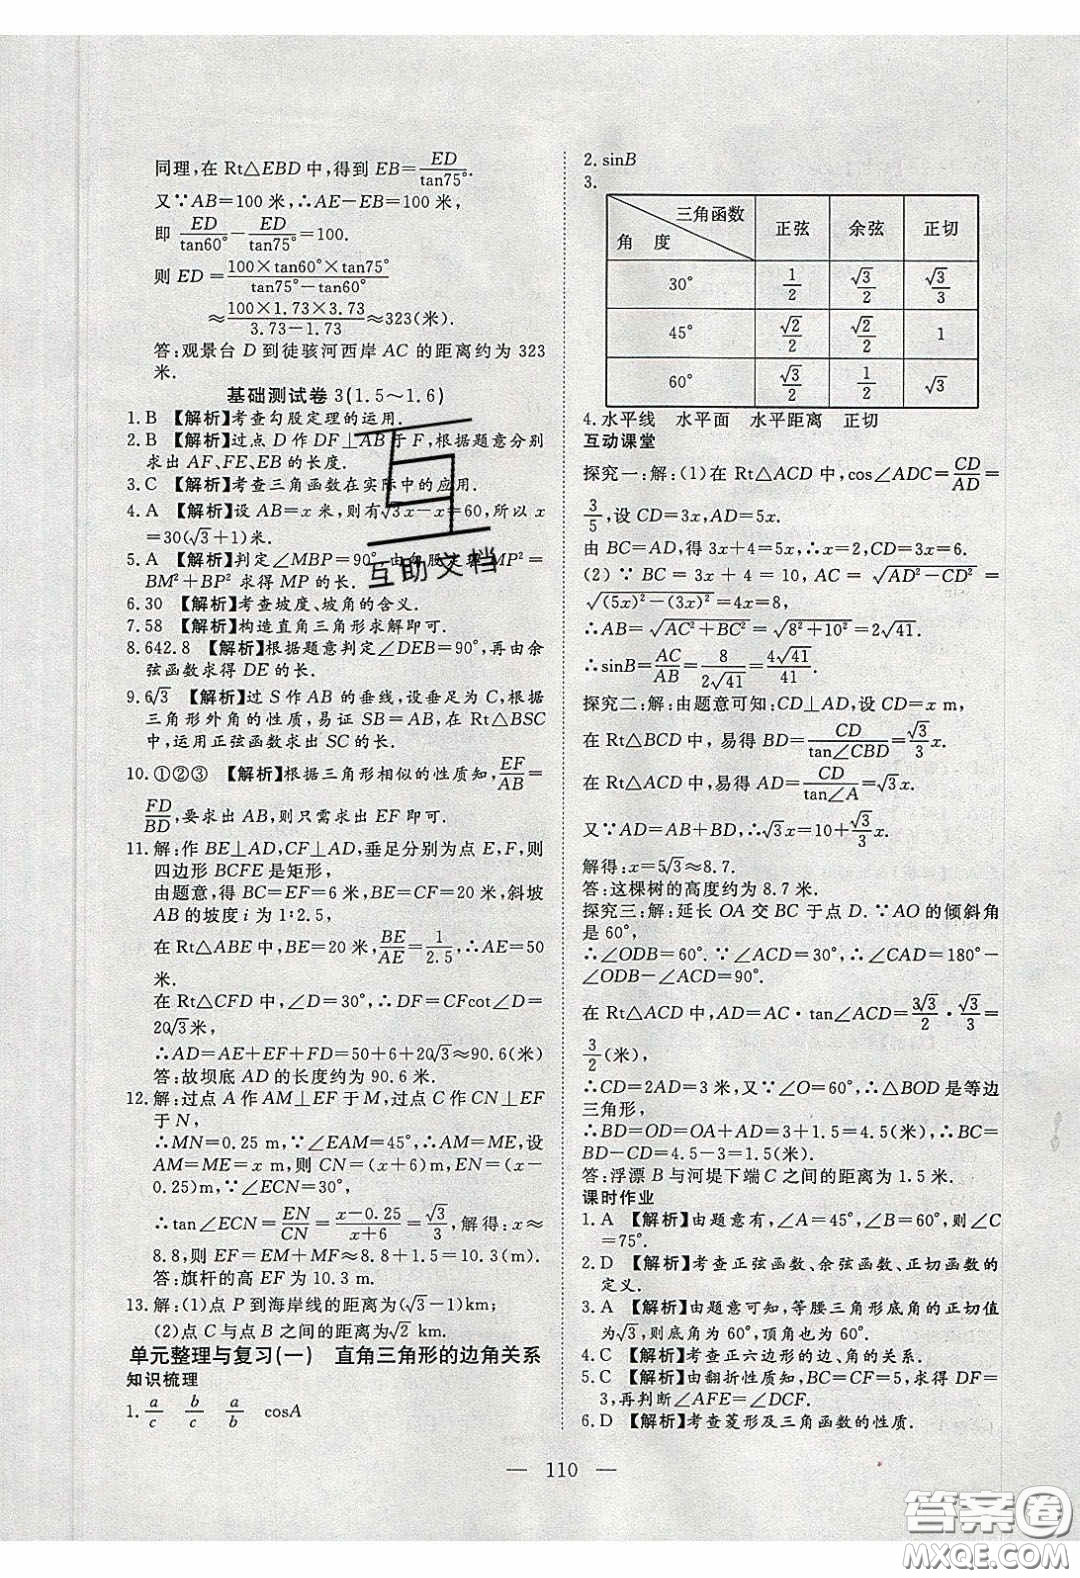 同理,在 Rt△EBD 中,得到 EB=ED/tan75°.
又∵AB=100 米,∴AE-EB=100 米,
即 ED/tan60°-ED/tan75°=100.
则 ED=100×tan60°×tan75°/tan75°-tan60°
≈100×1.73×3.73/3.73-1.73≈323(米).
答:观景台 D 到徒骇河西岸 AC 的距离约为 323
米.
基础测试卷 3(1.5~1.6)
1.B 【解析】考查勾股定理的运用.
2.B 【解析】过点 D 作 DF⊥AB 于 F,根据题意分别
求出 AF、FE、EB 的长度.
3.C 【解析】考查三角函数在实际中的应用.
4.A 【解析】设 AB=x 米,则有√3x-x=60,所以 x
=30(√3+1)米.
5.A 【解析】判定∠MBP=90°,由勾股定理 MP²=
BM²+BP² 求得 MP 的长.
6.30 【解析】考查坡度、坡角的含义.
7.58 【解析】构造直角三角形求解即可.
8.642.8 【解析】根据题意判定∠DEB=90°,再由余
弦函数求得 DE 的长.
9.6√3 【解析】过 S 作 AB 的垂线,设垂足为 C,根据
三角形外角的性质,易证 SB=AB,在 Rt△BSC
中,运用正弦函数求出 SC 的长.
10.①②③ 【解析】根据三角形相似的性质知,EF/AB=
FD/BD,要求出 AB,则只需求出 EF 即可.
11.解:作 BE⊥AD,CF⊥AD,垂足分别为点 E,F,则
四边形 BCFE 是矩形,
由题意,得 BC=EF=6 米,BE=CF=20 米,斜坡
AB 的坡度 i 为 1∶2.5,
在 Rt△ABE 中,BE=20 米,BE/AE=1/2.5,∴AE=50
米.
在 Rt△CFD 中,∠D=30°,∴DF=CFcot∠D=
20√3米,
∴AD=AE+EF+FD=50+6+20√3≈90.6(米)
答:故坝底 AD 的长度约为 90.6 米.
12.解:过点 A 作 AM⊥EF 于 M,过点 C 作 CN⊥EF
于 N,
∴MN=0.25 m,∵∠EAM=45°,∴AM=ME,设
AM=ME=x m,则 CN=(x+6)m,EN=(x-
0.25)m,∵∠ECN=30°,
∴tan∠ECN=EN/CN=x-0.25/x+6=√3/3,解得:x≈
8.8,则 EF=EM+MF≈8.8+1.5=10.3(m).
答:旗杆的高 EF 为 10.3 m.
13.解:(1)点 P 到海岸线的距离为(√3-1)km;
(2)点 C 与点 B 之间的距离为√2 km.
单元整理与复习(一) 直角三角形的边角关系
知识梳理
1.a/c b/c a/b cosA
2.sinB
3.
三角函数 角 度 正弦 余弦 正切
30° 1/2 √3/2 √3/3
45° √2/2 √2/2 1
60° √3/2 1/2 √3
4.水平线 水平面 水平距离 正切
互动课堂
探究一:解:(1)在 Rt△ACD 中,cos∠ADC=CD/AD=
3/5,设 CD=3x,AD=5x.
由 BC=AD,得 3x+4=5x,∴x=2,∴CD=3x=6.
(2)∵BC=3x+4=10,AC=√(AD²-CD²)=
√((5x)²-(3x)²)=4x=8,
∴AB=√(AC²+BC²)=√(8²+10²)=2√41.
∴sinB=AC/AB=8/2√41=4√41/41.
探究二:解:由题意可知:CD⊥AD,设 CD=x m,
在 Rt△BCD 中,易得 BD=CD/tan∠CBD=√3/3x.
在 Rt△ACD 中,易得 AD=CD/tan∠A=√3x.
又∵AD=AB+BD,∴√3x=10+√3/3x.
解得:x=5√3≈8.7.
答:这棵树的高度约为 8.7 米.
探究三:解:延长 OA 交 BC 于点 D.∵AO 的倾斜角
是 60°,
∴∠ODB=60°.∵∠ACD=30°,∴∠CAD=180°-
∠ODB-∠ACD=90°.
在 Rt△ACD 中,AD=AC·tan∠ACD=3√3/2·√3/3=
3/2(米),
∴CD=2AD=3 米,又∵∠O=60°,∴△BOD 是等边
三角形,
∴BD=OD=OA+AD=3+1.5=4.5(米),∴BC=
BD-CD=4.5-3=1.5(米).
答:浮漂 B 与河堤下端 C 之间的距离为 1.5 米.
课时作业
1.A 【解析】由题意有,∠A=45°,∠B=60°,则∠C
=75°.
2.D 【解析】考查正弦函数、余弦函数、正切函数的
定义.
3.A 【解析】由题意可知,等腰三角形底角的正切值
为√3,则底角为 60°,顶角也为 60°.
4.C 【解析】考查正六边形的边、角的关系.
5.C 【解析】由翻折性质知,BC=CF=5,求得 DF=
3,再判断∠AFE=∠DCF.
6.D 【解析】考查菱形及三角函数的性质.
— 110 —
互助文档
答案圈
MXQE.COM